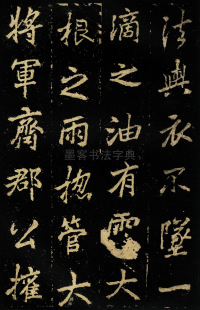 法與衣不墜一
滴之油有大
根之雨揔管大
將軍齊郡公權
墨客书法字典